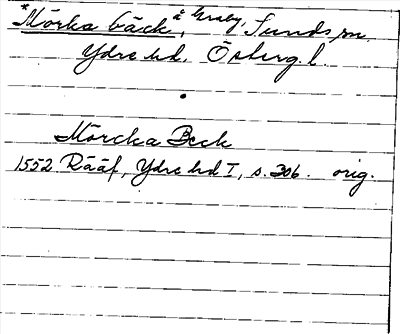 *Mörka bäck, å Graby, Sunds sn.
Ydre hd. Österg. l.
Mörcka Beck
1552 Rääf, Ydre hd I, s. 306. orig.